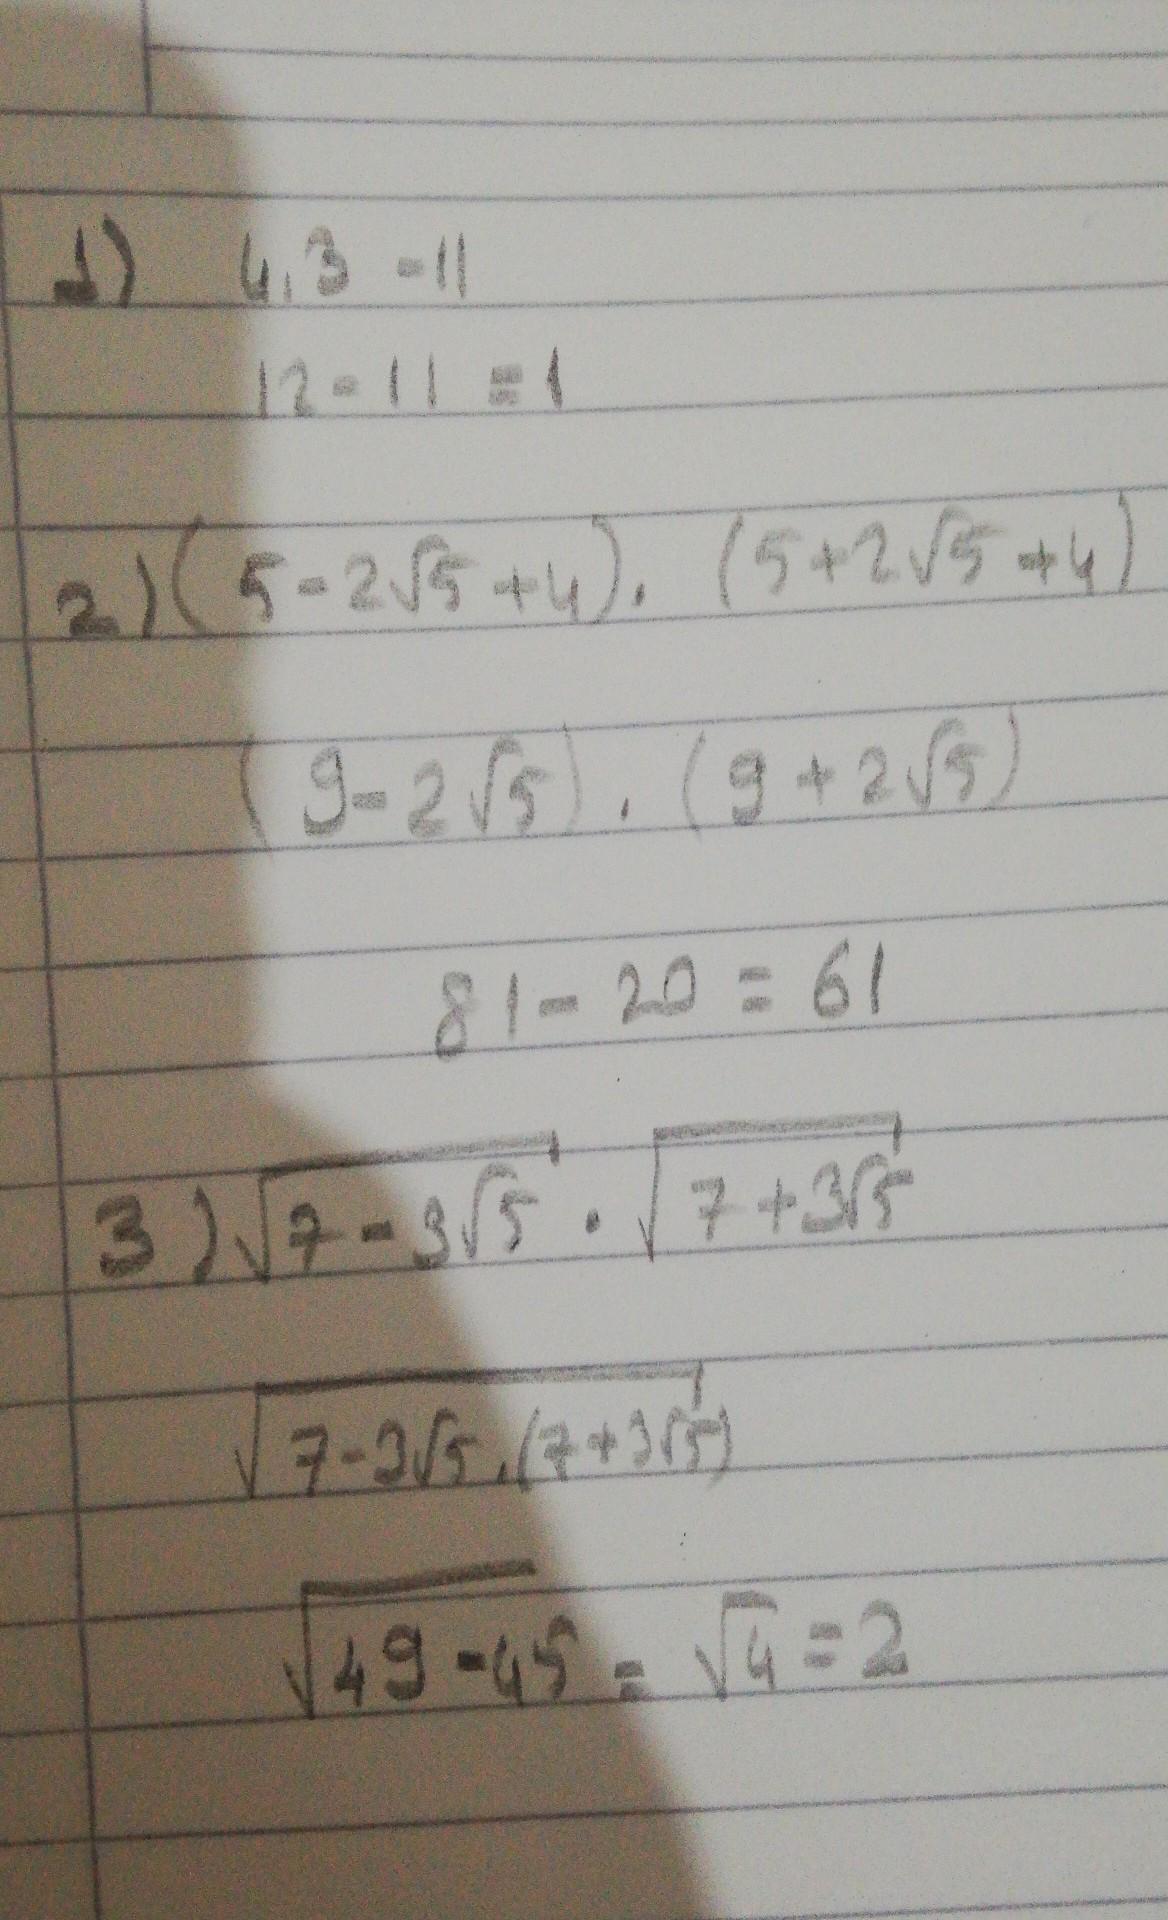 1) 4.3 - 11
12 - 11 = 1
2) (5 - 2√5 + 4). (5 + 2√5 + 4)
(9 - 2√5) . (9 + 2√5)
81 - 20 = 61
3) √(7 - 3√5) . √(7 + 3√5)
√(7 - 3√5 .(7 + 3√5))
√(49 - 45) = √4 = 2